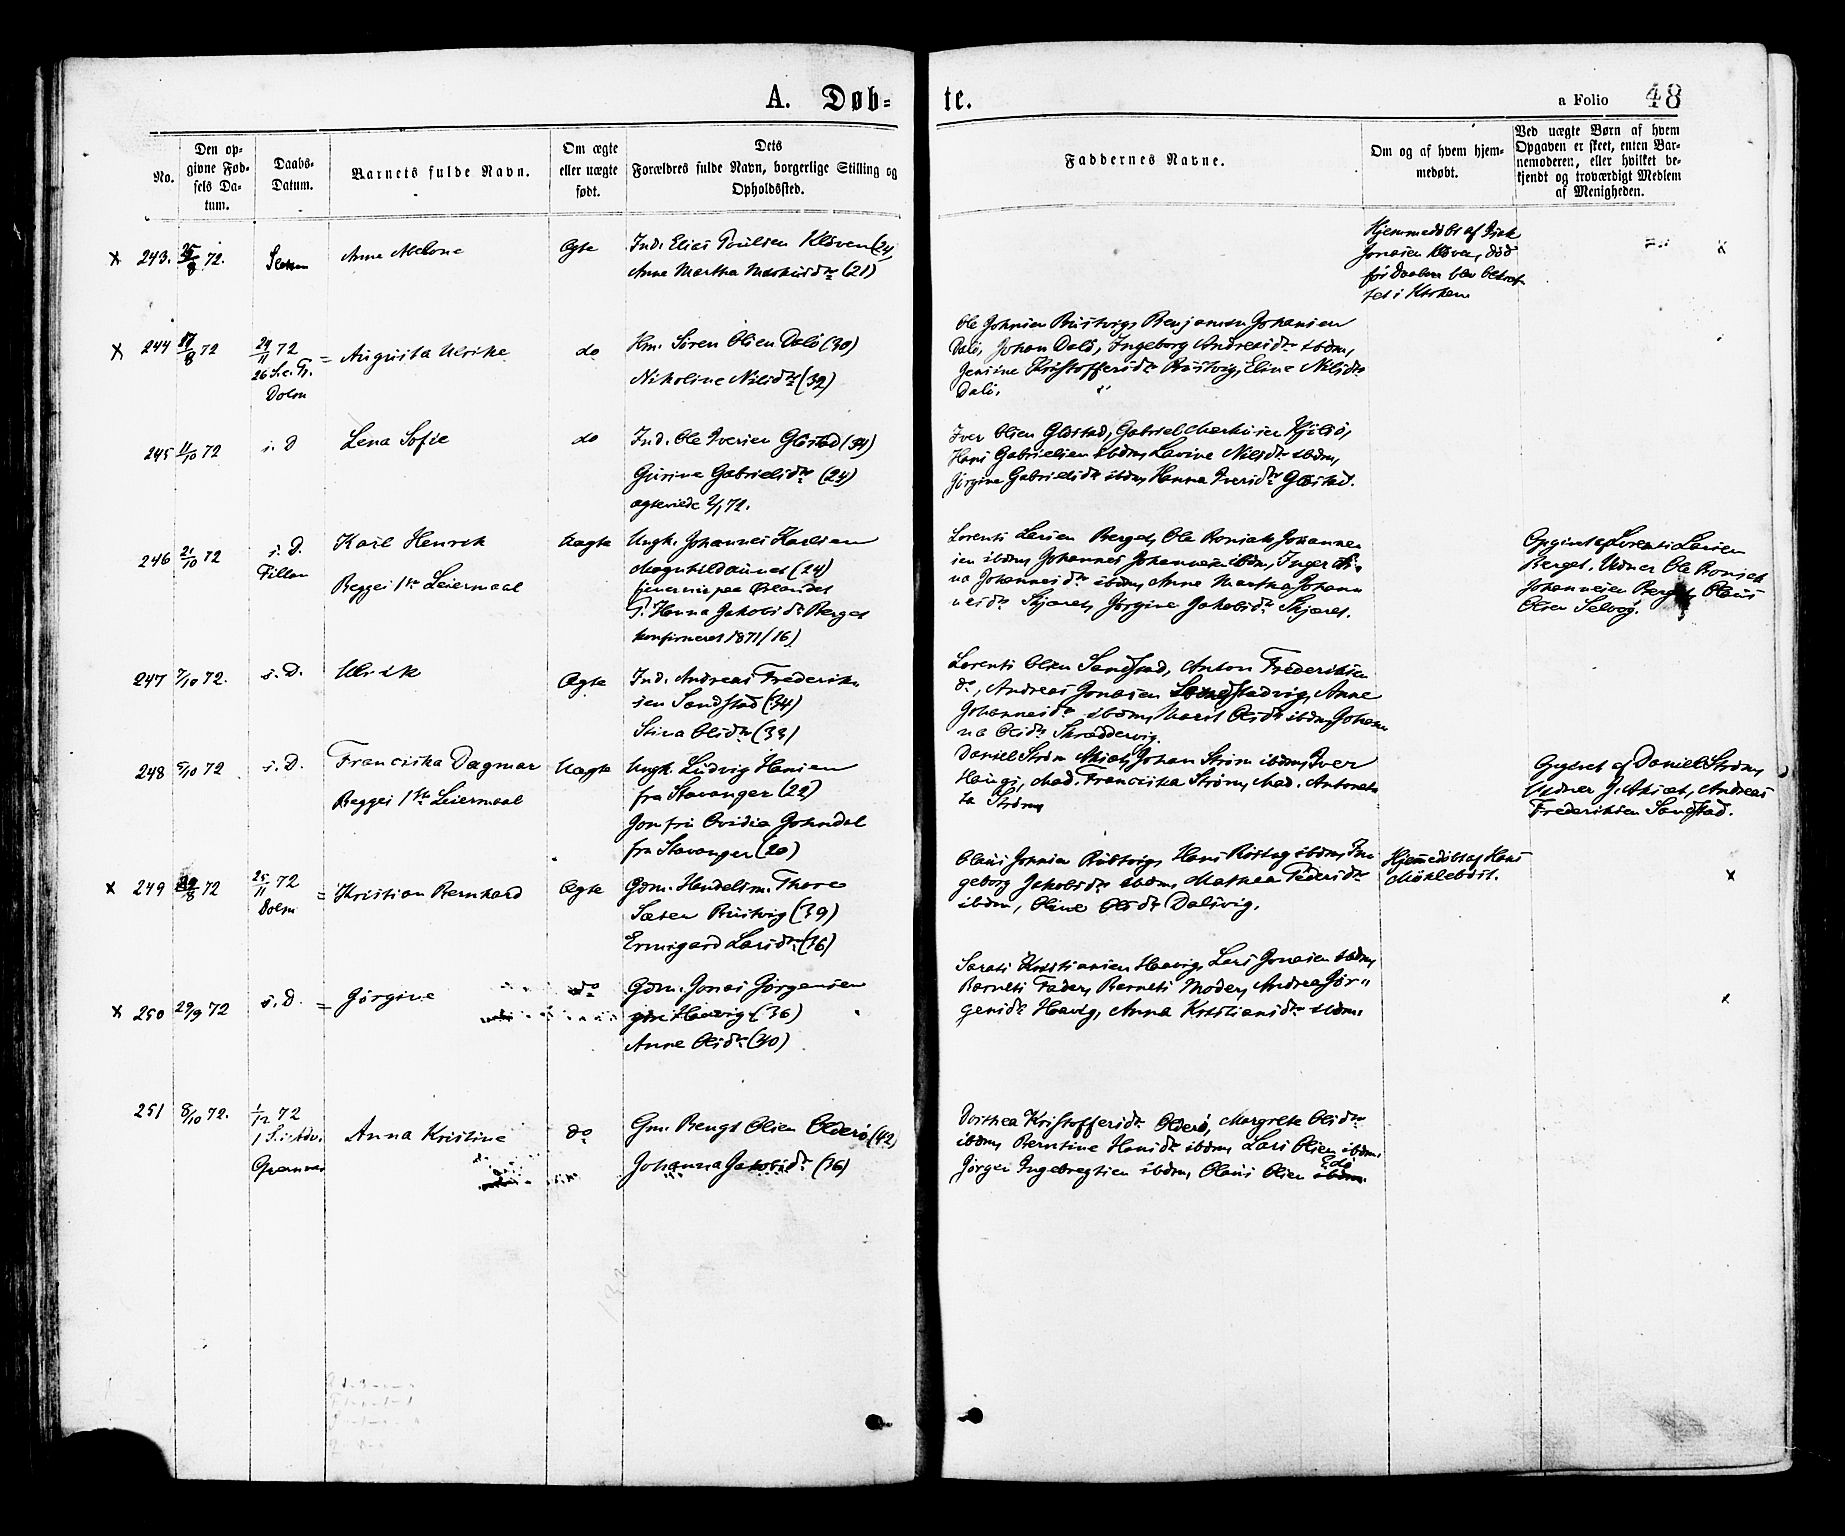 A. Døb-
te.
a Folio 48
No.
Den op-
givne Fød-
sels Da-
tum.
Daabs-
Datum.
Barnets fulde Navn.
Om ægte
eller uægte
født.
Dets
Forældres fulde Navn, borgerlige Stilling og
Opholdssted.
Faddernes Navne.
Om og af hvem hjem-
medøbt.
Ved uægte Børn af hvem
Opgaven er skeet, enten Bar-
nemoderen, eller hvilket be-
kjendt og troværdigt Medlem
af Menigheden.
x 243. 25/8 72.
Anne Malone
Ægte
Ind. Elias Poulsen Kløven (24)
Anne Martha Markusdtr (21)
Hjemmedøbt af Isak
Jonasen Kløven, død
før Daaben blev bekræf
tet i Kirken
x
x 244 17/8 72
24/11 72
26 S. e. Tr.
Dolm
= Augusta Ulrike
do
Km. Søren Olsen Dalø (30)
Nikoline Nilsdtr (32)
Ole Johnsen Rustvig, Benjamin Johansen
Dalø, Johan Dalø, Ingeborg Andreasdtr ibdm,
Jensine Kristoffersdtr Rustvig, Eline Nilsdtr
Dalø.
245 11/10 72
s. D
Lena Sofie
do
Ind. Ole Iversen Gløstad (34)
Gurine Gabrielsdtr (24)
ægteviede 2/1 72.
Iver Olsen Gløstad, Gabriel Markusen Kjølsø,
Hans Gabrielsen ibdm, Lavine Nilsdtr ibdm,
Jørgine Gabrielsdtr ibdm, Hanna Iversdtr Gløstad.
246 21/10 72
s. D.
Fillan
Karl Henrik
Begges 1ste Leiermaal
Uægte
Ungk. Johannes Karlsen
Magnhildaunet (24)
tjenernis paa Ørlandet
P. Hanna Jakobsdtr Berget
konfirmeret 1871 (16)
Lorents Larsen Berget, Ole Ronjak Johanne-
sen ibdm, Johannes Johannesen ibdm, Inger Ol-
na Johannesdtr ibdm, Anne Martha Johan
nesdtr Skjæret, Jørgine Jakobsdtr Skjæret.
Opgivet af Lorents Larsen
Berget. Vidner Ole Ronjak
Johannesen Berget, Olaus
Olsen Selvåg.
247 7/10 72.
s. D.
Ulrik
Ægte
Ind. Andreas Frederik
sen Sandstad (34)
Stina Olsdtr (33)
Lorents Olsen Sandstad, Anton Frederiksen
do, Andreas Jonasen Sandstadvig, Anne
Johannesdtr ibdm, Marit Olsdtr ibdm, Johan
na Olsdtr Skreddervig.
248 5/10 72
s. D.
Franciska Dagmar
Begges 1ste Leiermaal
Uægte
Ungk. Ludvig Hansen
fra Stavanger (22)
Jomfru Ovidia Johndal
fra Stavanger (20)
Daniel Strøm Akset, Johan Strøm ibdm, Iver
Haugs, Mad. Franciska Strøm, Mad. Antonet
ta Strøm
Opgivet af Daniel Strøm,
Vidner J. Akset, Andreas
Frederiksen Sandstad.
x 249 29/8 72
25/11 72
Dolm
= Kristian Bernhard
Ægte
Gdm. Handelsm. Thore
Sæter Rustvig (39)
Ermegard Larsdtr (36)
Olaus Johnsen Rustvig, Hans Røstag ibdm, In
geborg Jakobsdtr ibdm, Mathea Pedersdtr
ibdm, Oline Olsdtr Dalsvig.
Hjemmedøbt af Hans
Møklebost.
x
x 250 29/9 72
s. D.
= Jørgine
do
Gdm. Jonas Jørgensen
Haavig (36)
Anne Olsdtr (40)
Sarats Kristiansen Haavig, Lars Jonasen ibdm,
Barnets Fader, Barnets Moder, Andrea Jør-
gensdtr Haavig, Anna Kristiansdtr ibdm.
x
251 8/10 72.
1/12 72
1 S. i Adv.
Qvænnes
Anna Kristine
do
Gm. Bengt Olsen Olderø (42)
Johanna Jakobsdtr (36)
Dorthea Kristoffersdtr Olderø, Margrete Olsdtr
ibdm, Berntine Hansdtr ibdm, Lars Olsen ibdm,
Jørgen Ingebregtsen ibdm, Olaus Olsen ibdm